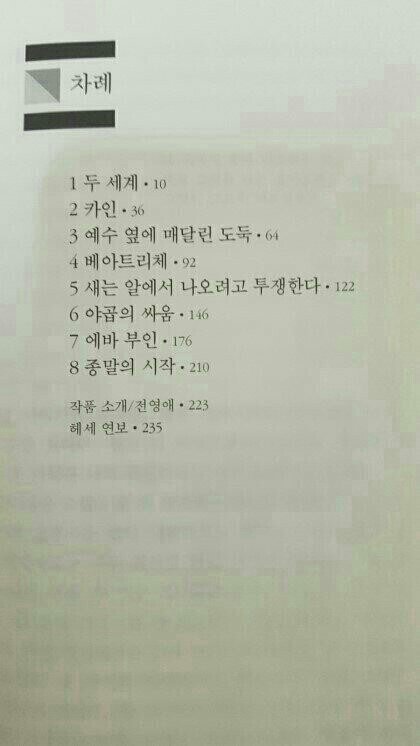 차례
1 두 세계 • 10
2 카인 • 36
3 예수 옆에 매달린 도둑 • 64
4 베아트리체 • 92
5 새는 알에서 나오려고 투쟁한다 • 122
6 야곱의 싸움 • 146
7 에바 부인 • 176
8 종말의 시작 • 210
작품 소개/전영애 • 223
헤세 연보 • 235